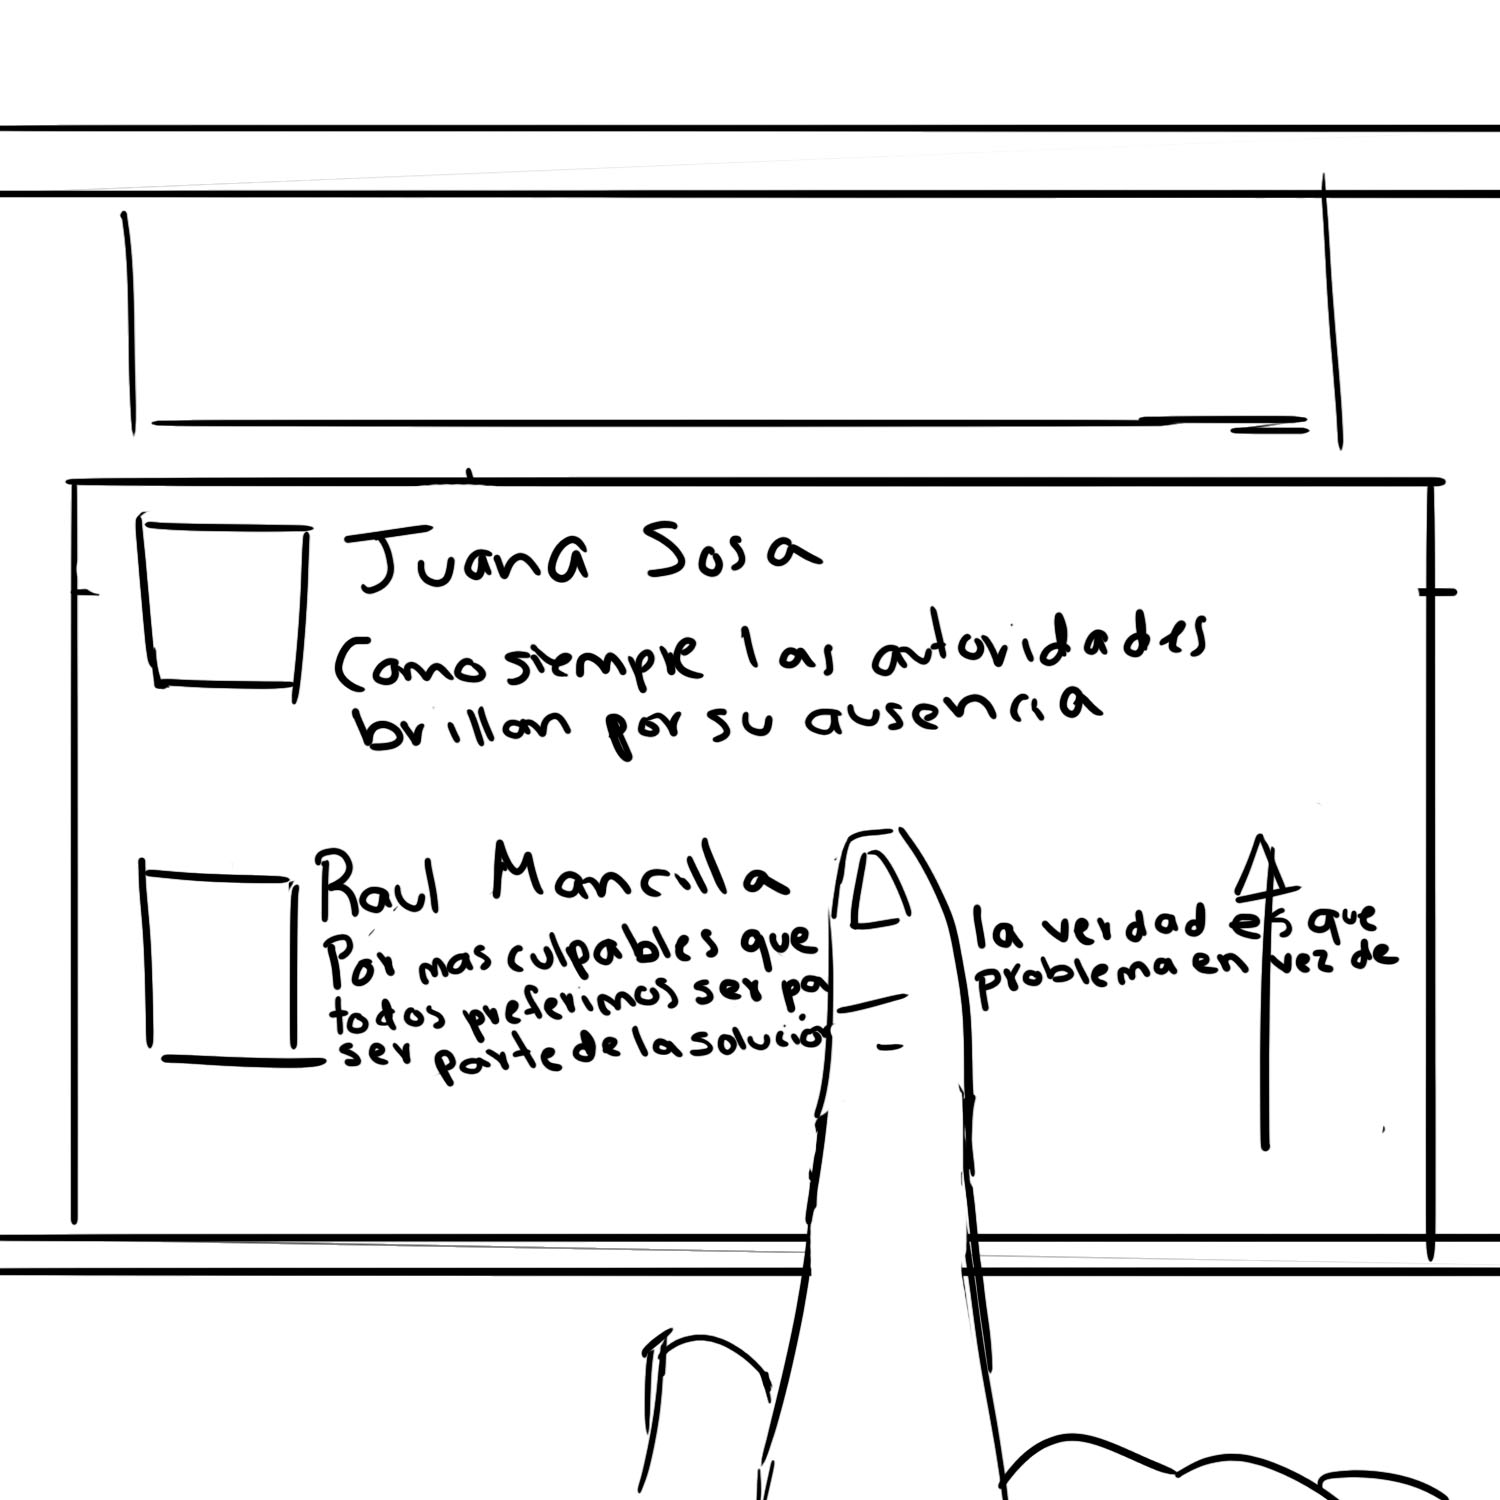 Juana Sosa
Como siempre las autoridades
brillan por su ausencia
Raul Mancilla
Por mas culpables que la verdad es que
todos preferimos ser pa problema en vez de
ser parte de la solución